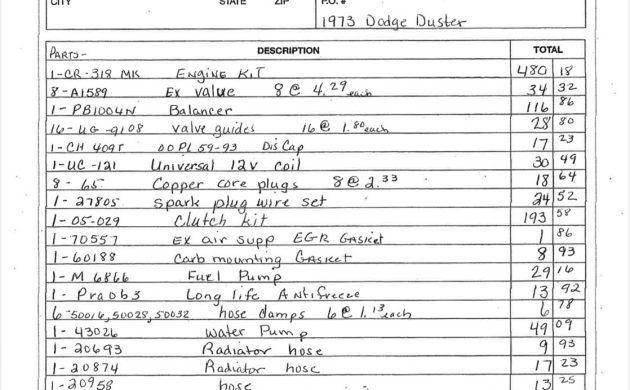 CITY STATE ZIP P.O. #
1973 Dodge Duster
PARTS- DESCRIPTION TOTAL
1-CR-318 MK ENGINE KIT 480 18
8-A1589 Ex value 8 @ 4.29 each 34 32
1-PB1004N Balancer 116 86
16-UG-9108 valve guides 16 @ 1.80 each 28 80
1-CH 409T 00 PL 59-93 Dis Cap 17 23
1-UC-121 Universal 12v coil 30 49
8-65 Copper core plugs 8 @ 2.33 18 64
1-27805 spark plug wire set 24 52
1-05-029 Clutch kit 193 58
1-70557 Ex air supp EGR GASKET 1 86
1-60188 Carb mounting GASKET 8 93
1-M 6866 Fuel Pump 29 16
1-Pra0b3 Long life Antifreeze 13 92
6-50016,50028,50032 hose clamps 6 @ 1.13 each 6 78
1-43026 water Pump 49 09
1-20693 Radiator hose 9 93
1-20874 Radiator hose 17 23
1-20958 hose 13 25